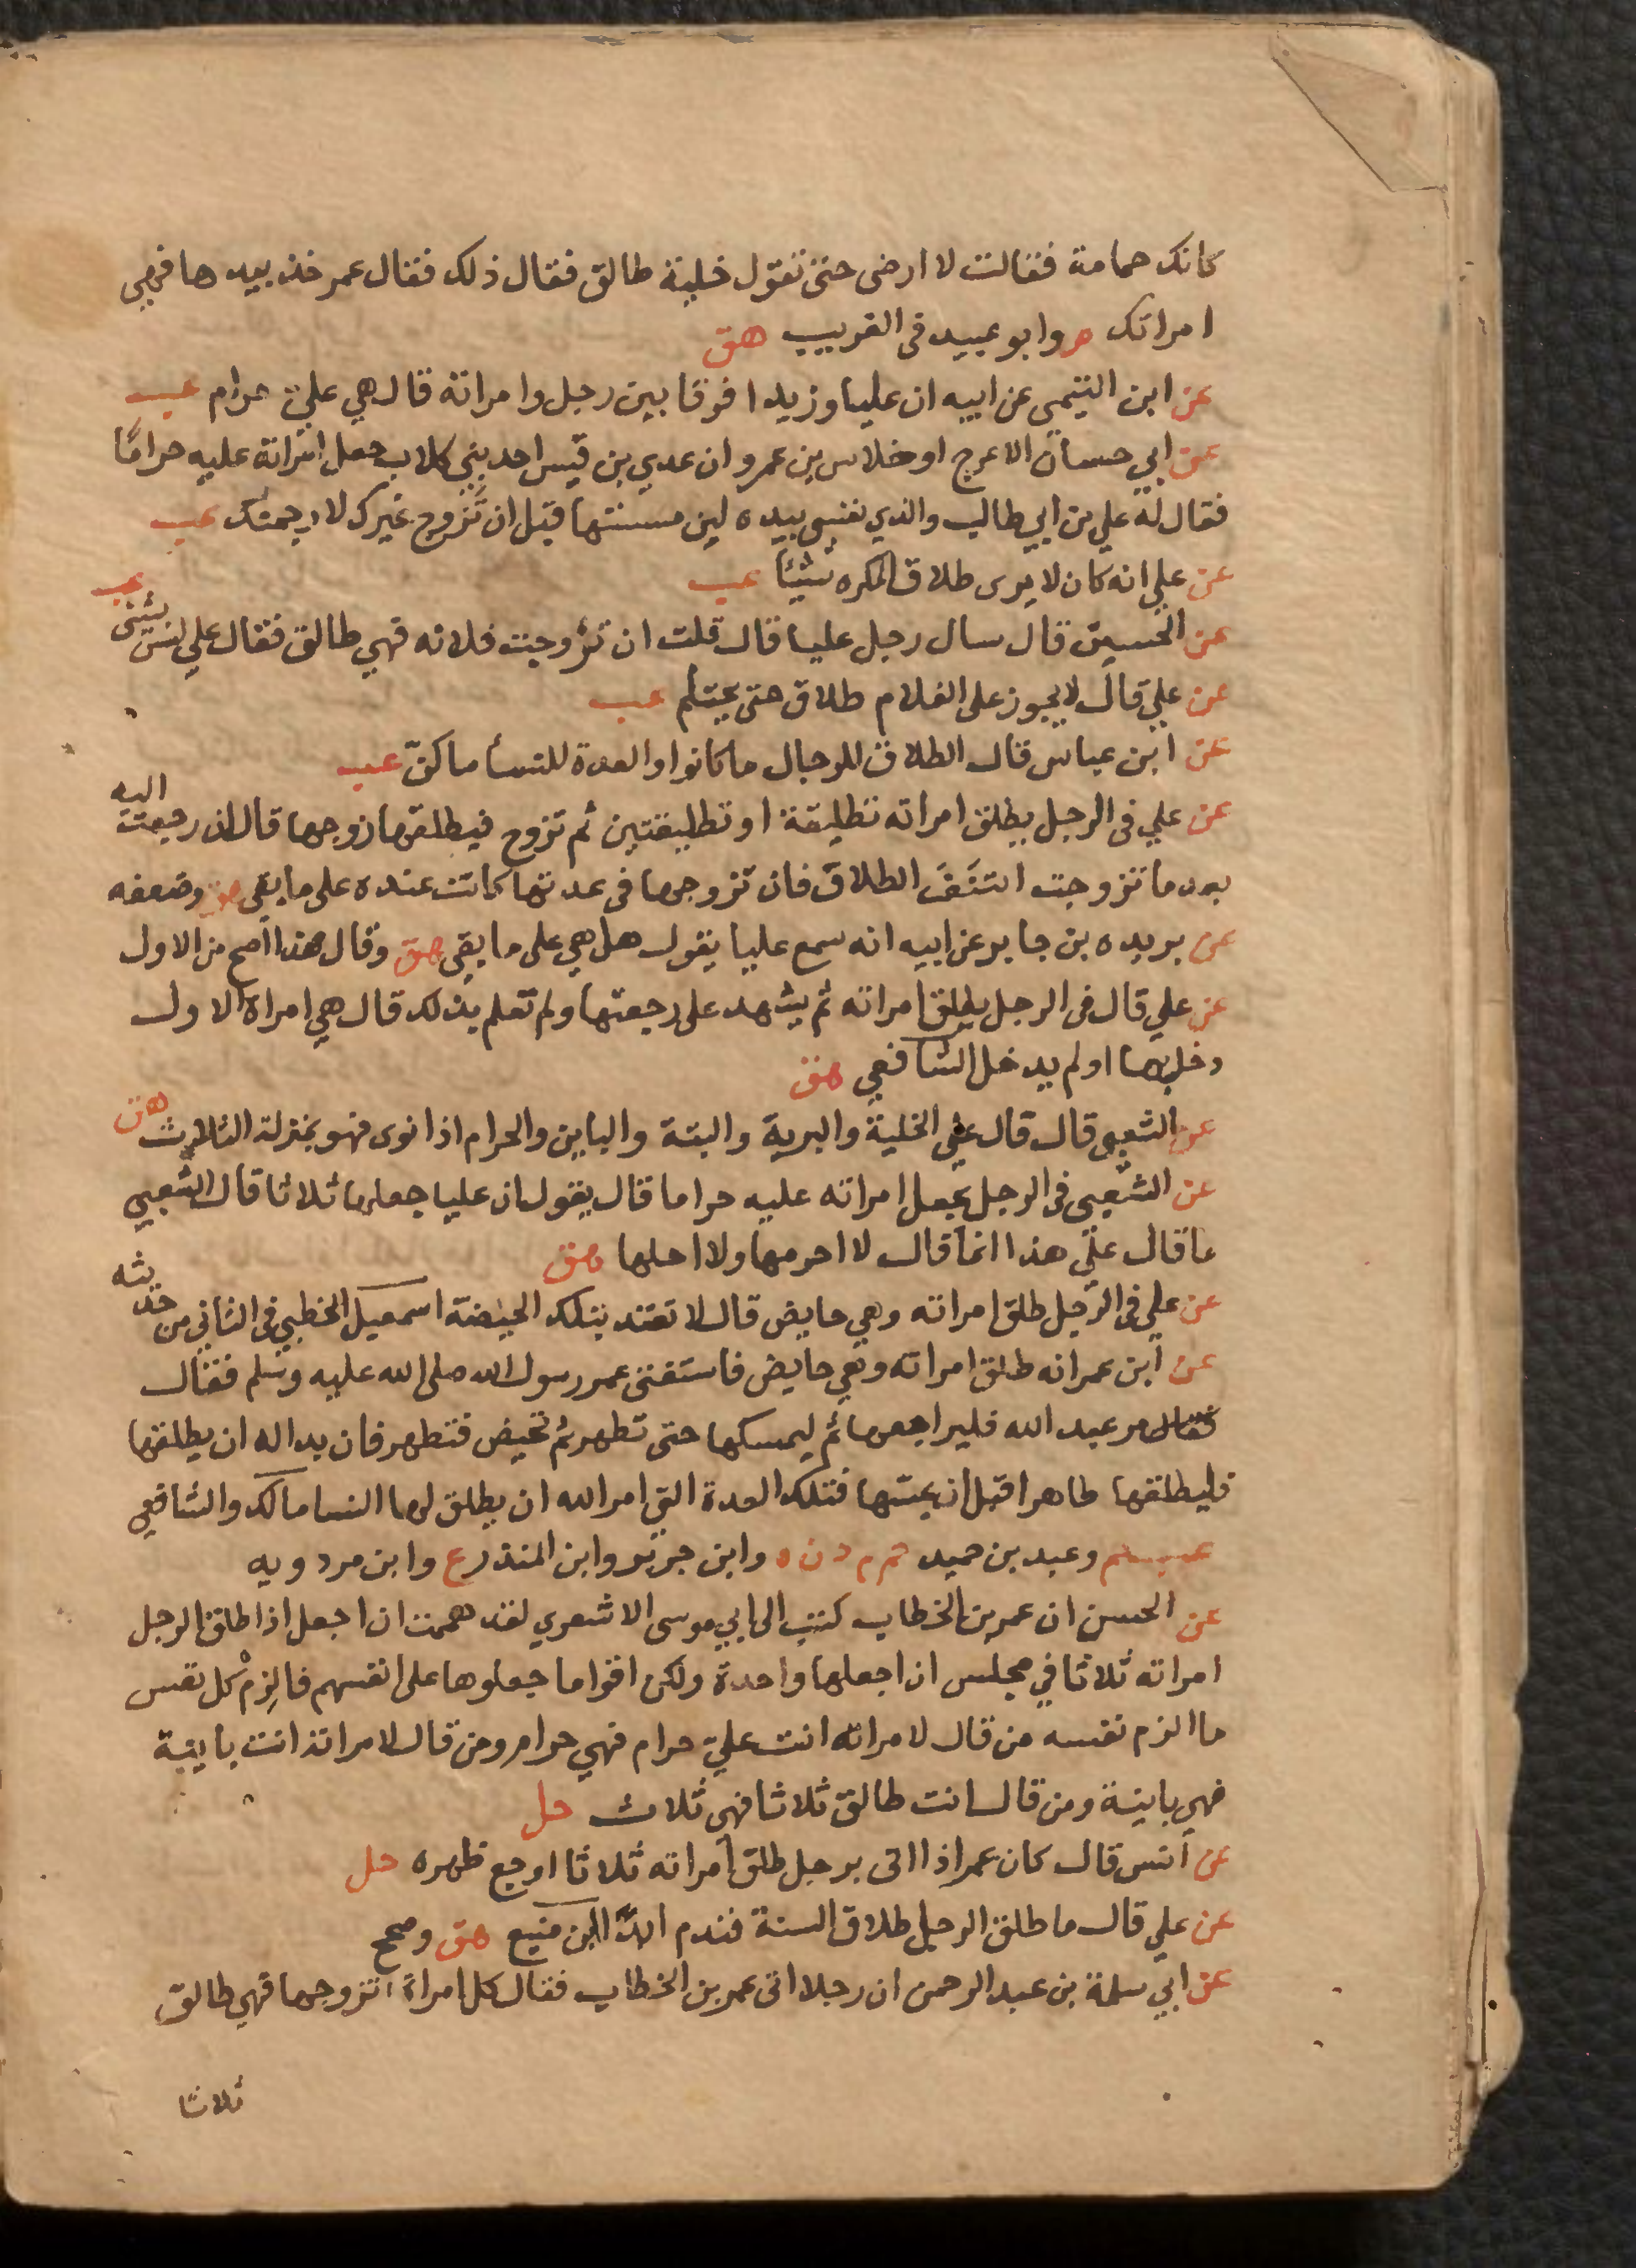 كانك حمامة فقالت لا ارضى حتى تقول خلية طالق فقال ذلك فقال عمر خذ بيدها فهي
امراتك وابو عبيد فى الغريب هق
عن ابن التيمي عن ابيه ان عليا وزيدا فرقا بين رجل وامراته قال هي عليّ حرام عب
عن ابي حسان الاعرج او خلاس بن عمرو ان عدي بن قيس احد بني كلاب جعل امراته عليه حرامًا
فقال له علي بن ابي طالب والذي نفسي بيده لين مسستها قبل ان تَزوج غيرك لارجمنك عب
عن علي انه كان لا يرى طلاق المكره شيئا عب
عن الحسين قال سال رجل عليا قال قلت ان تزوجت فلانه فهي طالق فقال علي ليس بشئ عب
عن علي قال لا يجوز على الغلام طلاق حتى يحتلم عب
عن ابن عباس قال الطلاق للرجال ما كانوا والعدة للنسأ ما كنّ عب
عن علي فى الرجل يطلق امراته تطليقة او تطليقتين ثم تزوج فيطلقها زوجها قال ان رجعت اليه
بعد ما تزوجت ائتنف الطلاق فان تزوجها فى عدتها كانت عنده على ما بقى هق وضعفه
عن بريده بن جابر عن ابيه انه سمع عليا يقول هل هي على ما بقى هق وقال هذا اصح من الاول
عن علي قال فى الرجل يطلق امراته ثم يشهد على رجعتها ولم تعلم بذلك قال هي امراة الاول
دخل بها او لم يدخل الشافعي هق
عن الشعبى قال قال علي الخلية والبرية والبتة والباين والحرام اذا نوى فهو بمنزلة الثلاث هق
عن الشعبى فى الرجل يجعل امراته عليه حراما قال يقول ان عليا جعلها ثلاثا قال الشعبي
ما قال عليّ هذا انما قال لا احرمها ولا احلها هق
عن علي فى الرجل طلق امراته وهي حايض قال لا تعتد بتلك الحيضة اسمعيل الخطبي فى الثاني من حديثه
عن ابن عمر انه طلق امراته وهي حايض فاستفتى عمر رسول الله صلى الله عليه وسلم فقال
فقال مر عبد الله فليراجعها ثم ليمسكها حتى تطهر ثم تحيض فتطهر فان بدا له ان يطلقها
فليطلقها طاهرا قبل ان يمسها فتلك العدة التي امر الله ان يطلق لها النسا مالك والشافعي
عب وعبد بن حميد خ م د ن ه وابن جرير وابن المنذر ع وابن مردويه
عن الحسن ان عمر بن الخطاب كتب الى ابي موسى الاشعري لقد هممت ان اجعل اذا طلق الرجل
امراته ثلاثا في مجلس ان اجعلها واحدة ولكن اقواما جعلوها على انفسهم فالزِمْ كل نفس
ما الزم نفسه من قال لامراته انت عليّ حرام فهي حرام ومن قال لامراته انت باينة
فهي باينة ومن قال انت طالق ثلاثا فهي ثلاث حل
عن انس قال كان عمر اذا اتى برجل طلق امراته ثلاثا اوجع ظهره حل
عن علي قال ما طلق الرجل طلاق السنة فندم ابدًا ابن منيع هق وصحح
عن ابي سلمة بن عبد الرحمن ان رجلا اتى عمر بن الخطاب فقال كل امراة اتزوجها فهي طالق
ثلاثا